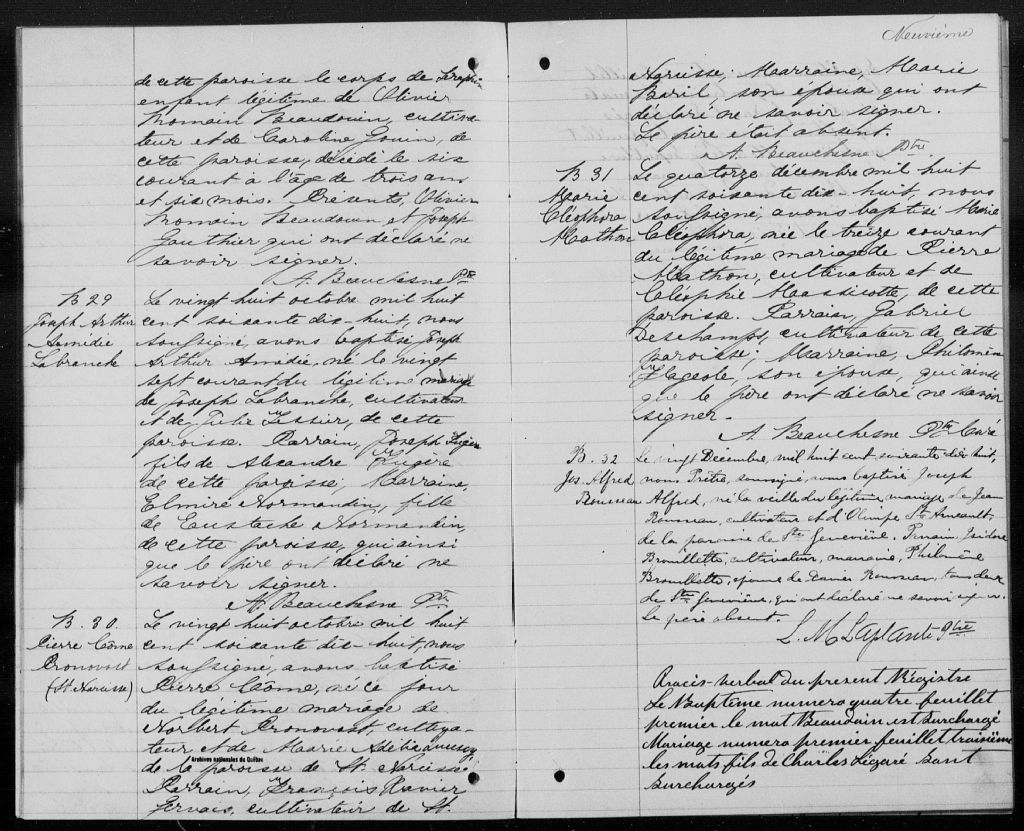 de cette paroisse le corps de Séraphin
enfant légitime de Olivier
Romain Beaudouin, cultiva-
teur et de Caroline Gouin, de
cette paroisse, décédé le six
courant à l'âge de trois ans
et six mois. Présents, Olivier
Romain Beaudouin et Joseph
Gauthier qui ont déclaré ne
savoir signer.
A. Beauchesne Ptre
B 29
Joseph Arthur
Amédie
Labranche
Le vingt huit octobre mil huit
cent soixante dix-huit, nous
soussigné, avons baptisé Joseph
Arthur Amédie, né le vingt
sept courant du légitime mariage
de Joseph Labranche, cultivateur
et de Julie Lessier, de cette
paroisse. Parrain, Joseph
fils de Alexandre
de cette paroisse; Marraine,
Elmire Normandin, fille
de Eustache Normandin,
de cette paroisse, qui ainsi
que le père ont déclaré ne
savoir signer.
A. Beauchesne Ptre
B. 30.
Pierre Côme
Pronovost
(St. Narcisse)
Le vingt huit octobre mil huit
cent soixante dix-huit, nous
soussigné, avons baptisé
Pierre Côme, né ce jour
du légitime mariage de
Norbert Pronovost, cultiva-
teur et de Marie Adélie
Archives nationales du Québec
de la paroisse de St. Narcisse
Parrain, François Xavier
Gervais, cultivateur de St.
Neuvième
Narcisse; Marraine, Marie
Baril, son épouse qui ont
déclaré ne savoir signer.
Le père était absent.
A. Beauchesne Ptre
B 31
Marie
Cléophora
Mathon
Le quatorze décembre mil huit
cent soixante dix-huit, nous
soussigné, avons baptisé Marie
Cléophora, née le treize courant
du légitime mariage de Pierre
Mathon, cultivateur et de
Cléophie Massicotte, de cette
paroisse. Parrain, Gabriel
Deschamps, cultivateur de cette
paroisse; Marraine, Philomène
Lageole, son épouse, qui ainsi
que le père ont déclaré ne savoir
signer.
A. Beauchesne Ptre Curé
B. 32
Jos. Alfred
Rousseau
Le vingt Décembre, mil huit cent soixante dix huit,
nous Prêtre, soussigné, avons baptisé Joseph
Alfred, né la veille du légitime mariage de Jean
Rousseau, cultivateur et d'Olimpe St. Arneault
de la paroisse de Ste Geneviève, Parrain, Isidore
Brouillette, cultivateur, marraine, Philomène
Brouillette, épouse de Rousseau, tous deux
de Ste Geneviève, qui ont déclaré ne savoir signer.
Le père absent.
L. M. Laplante Ptre
Procès-verbal du présent Régistre
Le Baptème numero quatre feuillet
premier le mot Beaudoin est Surchargé
Mariage numero premier feuillet troisième
les mots fils de Charles Légaré sont
Surchargés